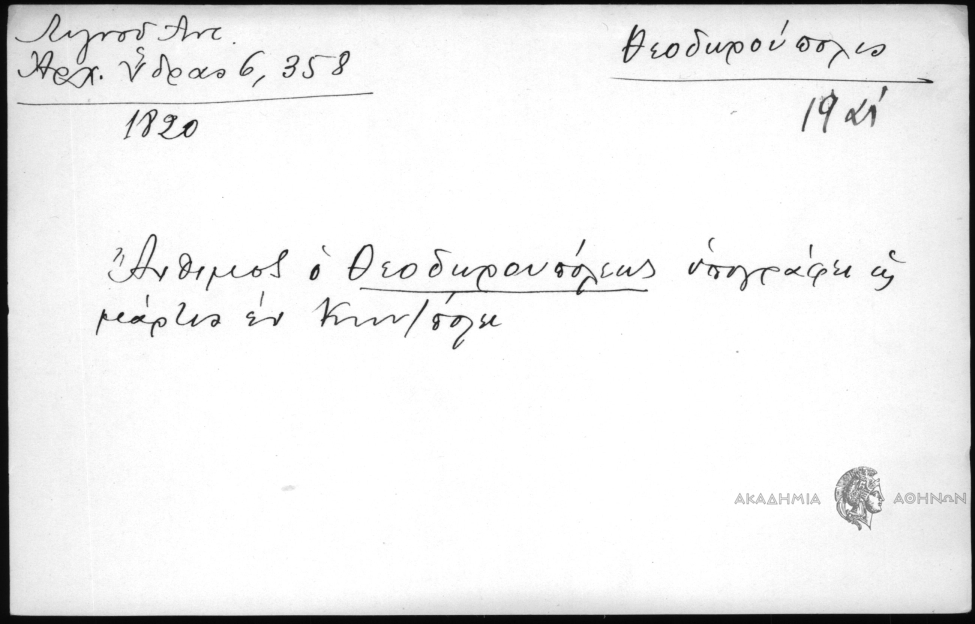 Λιγνοῦ Ἀντ.
Ἀρχ. Ὕδρας 6, 358
1820
Θεοδωρούπολις
19 αι
Ἄνθιμος ὁ Θεοδωρουπόλεως ὑπογράφει ὡς
μάρτυς ἐν Κων/πόλει
ΑΚΑΔΗΜΙΑ ΑΘΗΝΩΝ